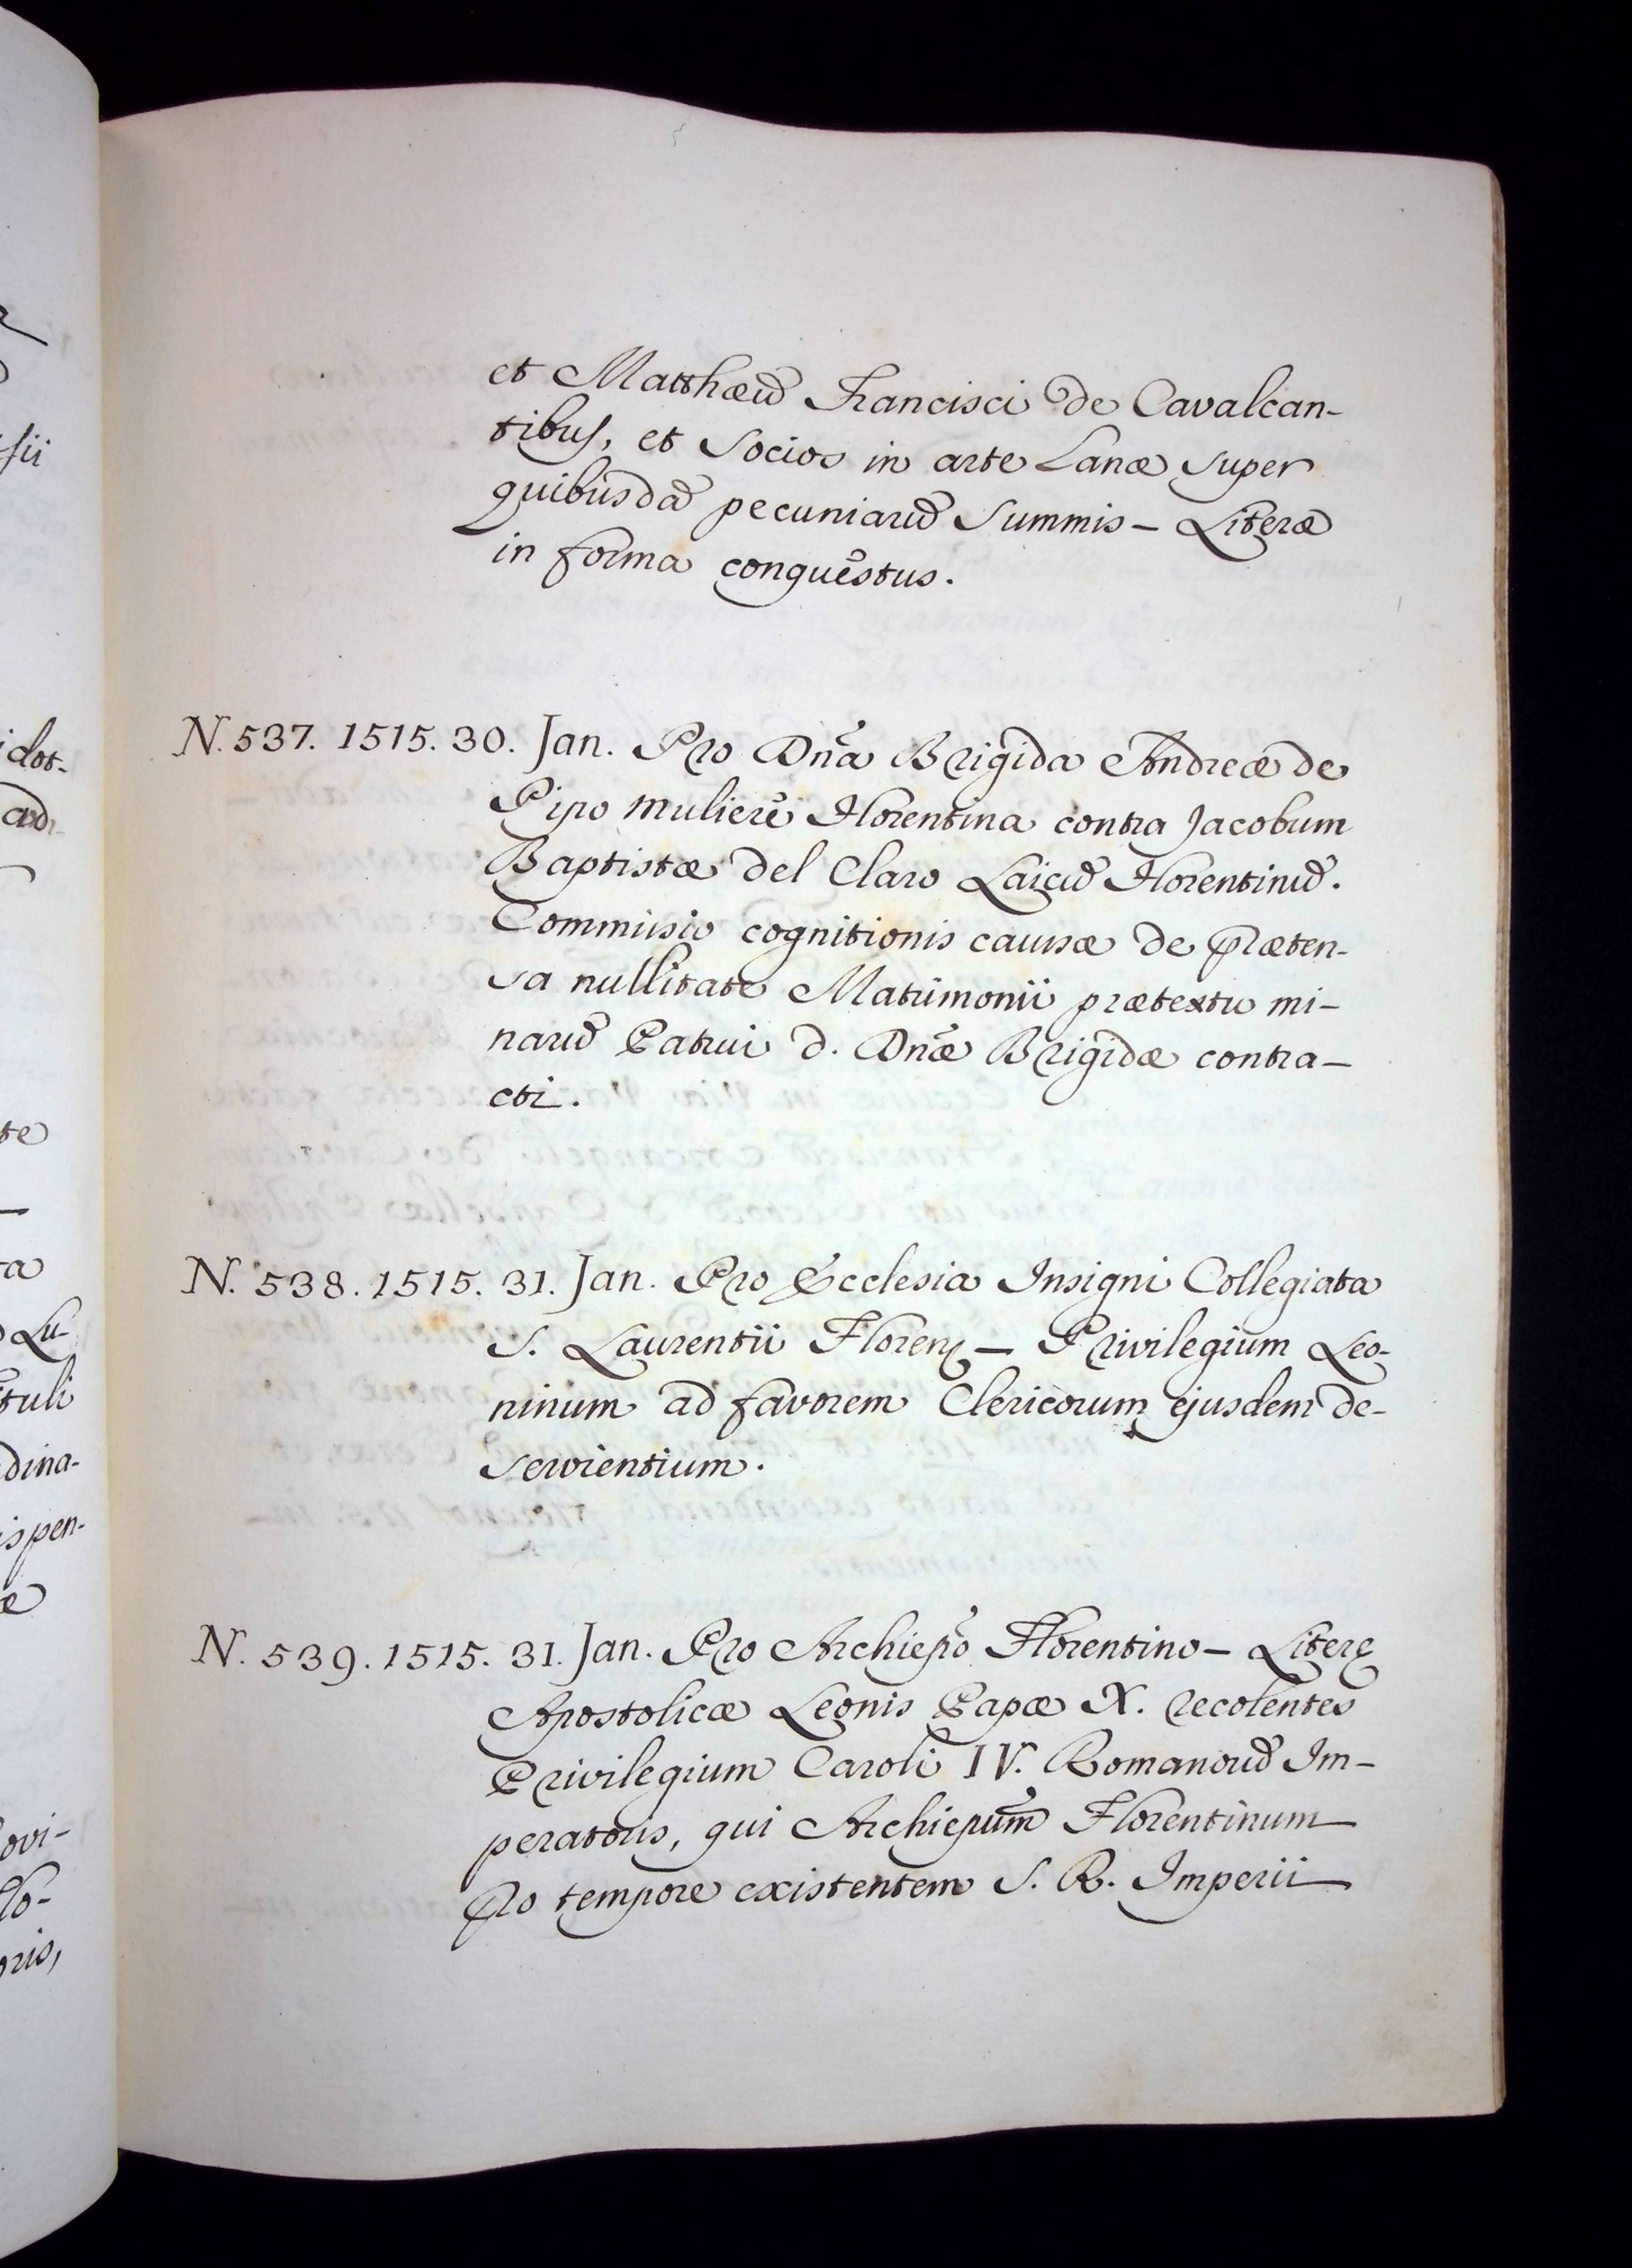 et Matthæū Francisci de Cavalcan-
tibus, et Socios in arte Lanæ super
quibusdā pecuniarū Summis – Literæ
in forma conquestus.
N. 537. 1515. 30. Jan. Pro Dñā Brigida Andreæ de
Pipo muliere Florentina contra Jacobum
Baptistæ del Claro Laicū Florentinū.
Commissio cognitionis caussæ de præten-
sa nullitate Matrimonii prætextu mi-
narū Patrui d. Dñæ Brigidæ contra-
cti.
N. 538. 1515. 31. Jan. Pro Ecclesia Insigni Collegiata
S. Laurentii Florenȩ – Privilegium Leo-
ninum ad favorem Clericorum ejusdem de-
servientium.
N. 539. 1515. 31. Jan. Pro Archiepõ Florentino – Literę
Apostolicæ Leonis Papæ X. recolentes
Privilegium Caroli IV. Romanorū Im-
peratoris, qui Archiepũm Florentinum
pro tempore existentem S. R. Imperii